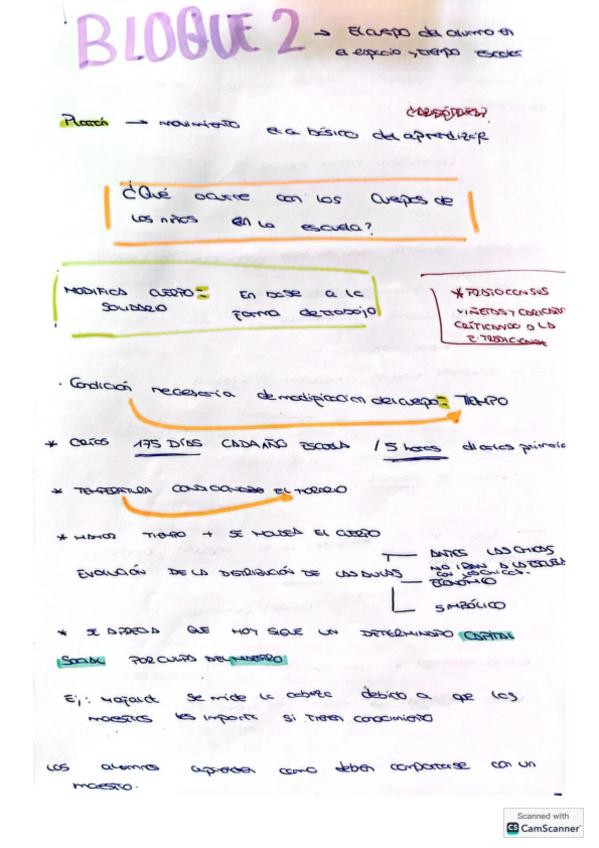 BLOQUE 2 → El cuerpo del alumno en
el espacio y tiempo escolar
¿ARISTÓTELES?
Platón → movimiento era básico del aprendizaje
¿Qué ocurre con los cuerpos de
los niños en la escuela?
MODIFICA CUERPO = En base a la
SOLIDARIO forma de trabajo
* FRATO CON SUS
VIÑETAS Y
CRITICANDO A LA
E. TRADICIONAL
· Condición necesaria de modificación del cuerpo = TIEMPO
* CRÍOS 175 DÍAS CADA AÑO ESCUELA / 5 horas diarias primaria
* TEMPERATURA CONDICIONADO EL HORARIO
* MAYOR TIEMPO + SE MOLDEA EL CUERPO
EVOLUCIÓN DE LA DISTRIBUCIÓN DE LAS AULAS
ANTES LAS CHICAS
NO IBAN A LA ESCUELA
CON LOS CHICOS.
ECONÓMICO
SIMBÓLICO
* SE APRECIA QUE HOY SIGUE UN DETERMINADO CAPITAL
SOCIAL POR CULPA DEL MAESTRO
Ej: Mafalda se mide la cabeza debido a que los
maestros les importa si tienen conocimiento
Los alumnos aprenden como deben comportarse con un
maestro.
Scanned with
CS CamScanner